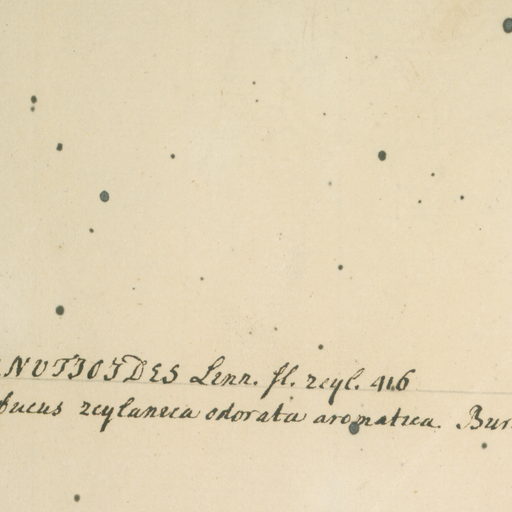 NUTIOIDES Linn. fl. zeyl. 416
bucus zeylanica odorata aromatica. Bur